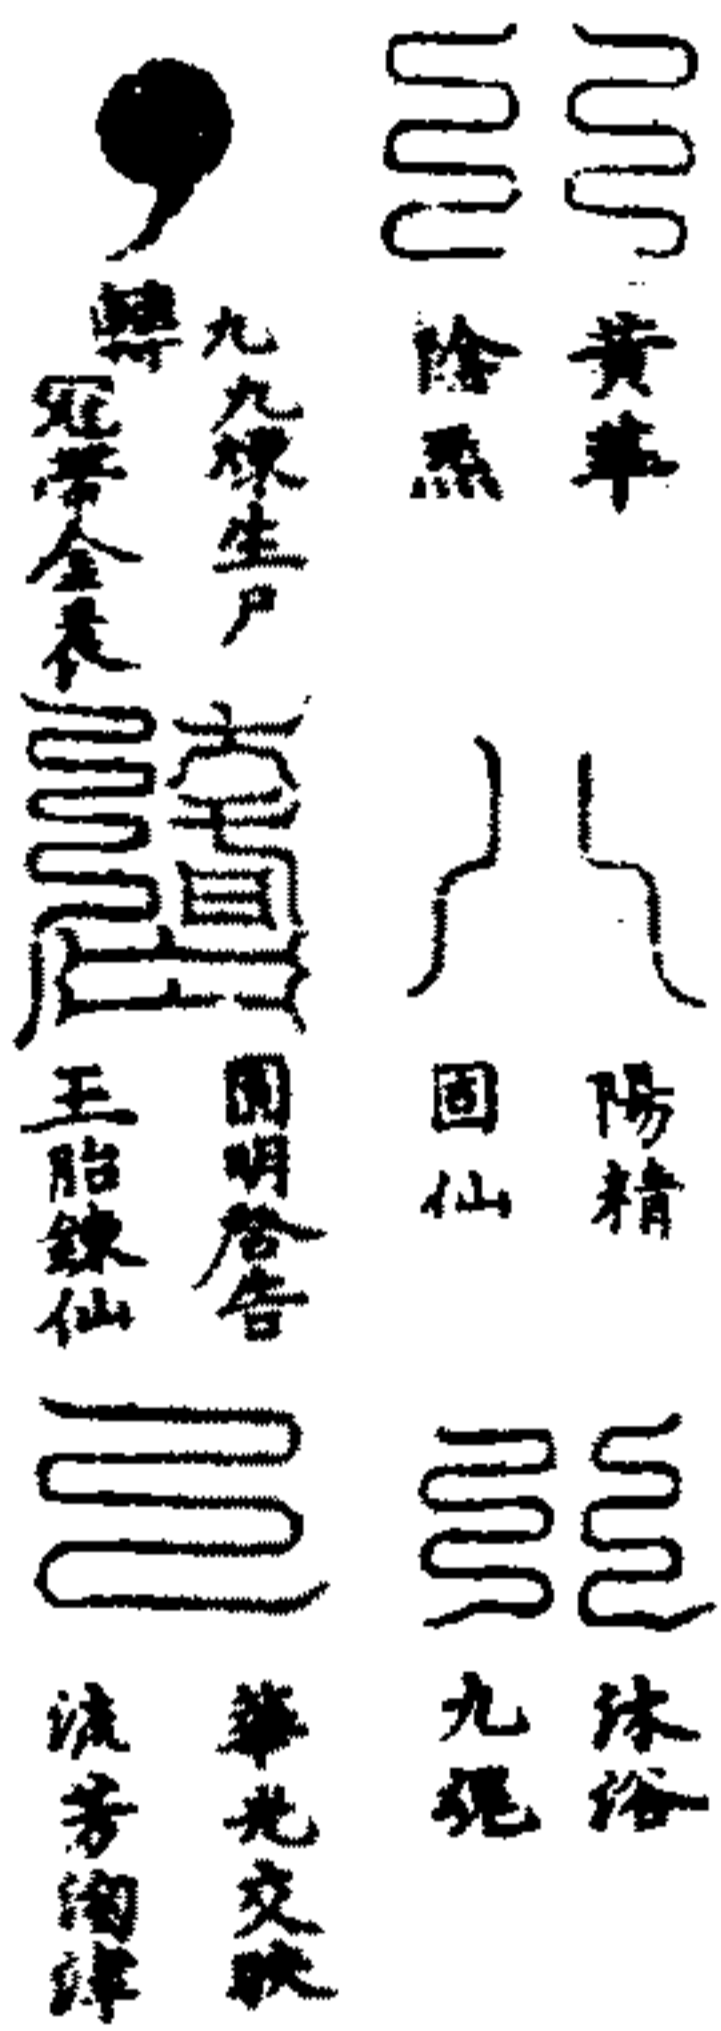 黃華
陰炁
陽精
固仙
沐浴
九魂
九
九煉生尸
冠帶金衣
圓明啓告
玉胎鍊仙
華光交映
流芳洞津